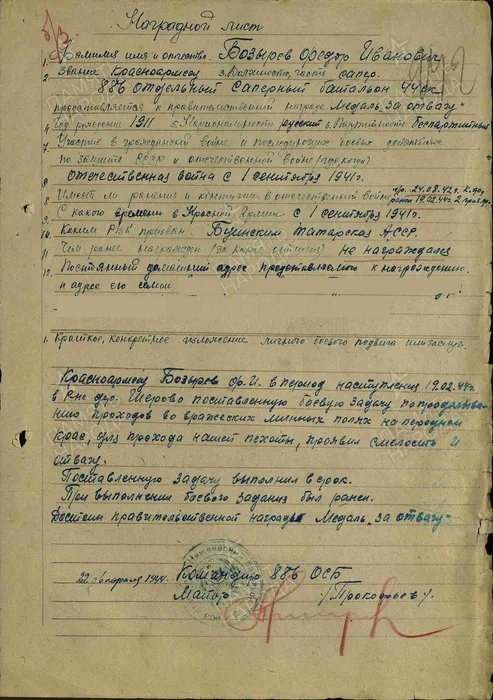 Наградной лист
1. Фамилия имя и отчество. Бозырев Федор Иванович
2. Звание Красноармеец 3. Должность, часть сапер.
88й Отдельный Саперный батальон 44 ск
представляется к правительственной награде Медаль "За отвагу"
4. Год рождения 1911 5. Национальность русский 6. Партийность беспартийный
7. Участие в гражданской войне и последующих боевых действиях
по защите СССР и отечественной войне (где, когда)
Отечественная война с 1 сентября 1941 г.
8. Имеет ли ранения и контузии в отечественной войне 24.08.42 г.
ранен 19.02.44 г.
9. С какого времени в Красной Армии с 1 сентября 1941 г.
10. Каким РВК призван Буинским Татарская АССР.
11. Чем ранее награжден (за какие отличия) не награждался
12. Постоянный домашний адрес представляемого к награждению
и адрес его семьи
1. Краткое, конкретное изложение личного боевого подвига или заслуг.
Красноармеец Бозырев Ф.И. в период наступления 19.02.44 г.
в р-не дер. Шерово поставленную боевую задачу по проделыва-
нию проходов во вражеских минных полях на переднем
крае, для прохода нашей пехоты, проявил смелость и
отвагу.
Поставленную задачу выполнил в срок.
При выполнении боевого задания был ранен.
Достоин правительственной награды Медаль "За отвагу"
22 февраля 1944 Командир 88й ОСБ
Майор /Прокофьев/.